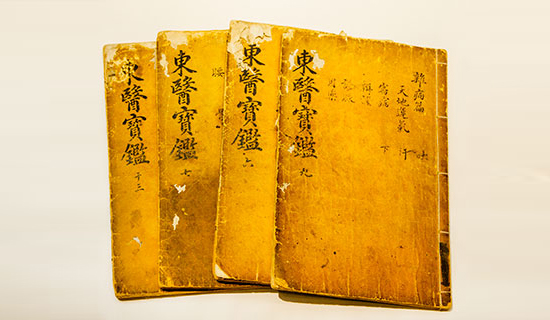 雜病篇 吐
天地運氣 汗
審病 下
辨證
診脉
用藥
東醫寶鑑 九
東醫寶鑑 六
東醫寶鑑 七
東醫寶鑑 十三